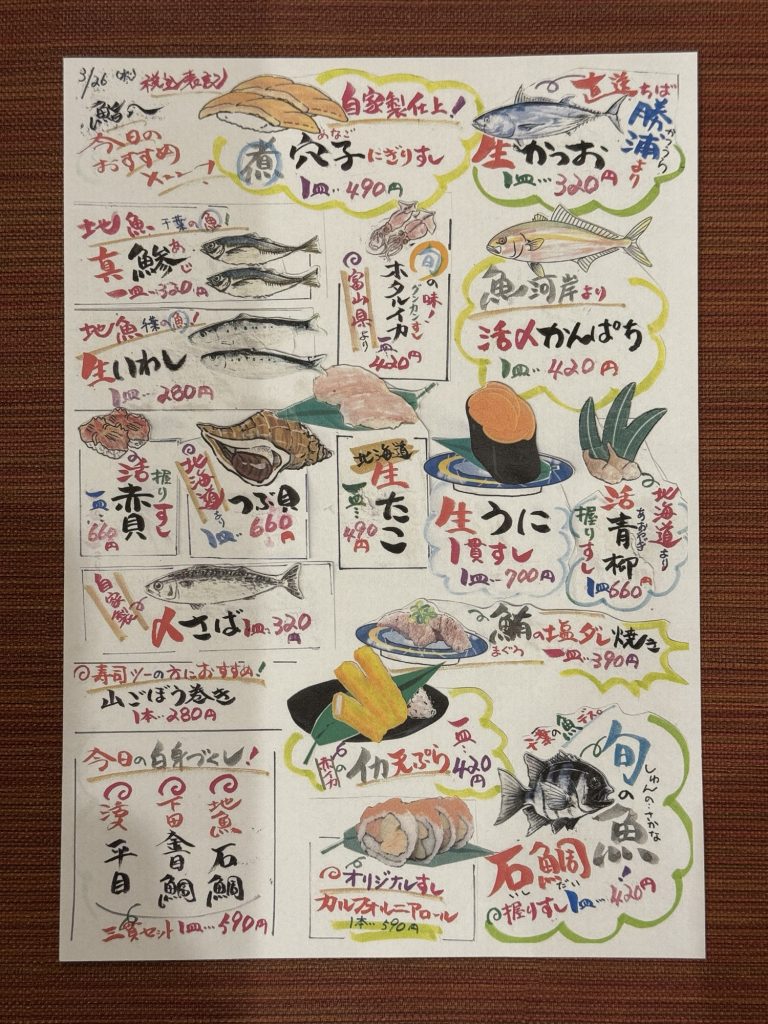 3/26(水) 税込表記
鮨へ
今日の
おすすめ
メニュー!
自家製仕上!
煮 穴子にぎりすし
あなご
1皿…490円
直送ちば
勝浦より
かつうら
生かつお
1皿…320円
地魚 千葉の魚!
真鯵
あじ
一皿…320円
旬の味!
グンカンすし
ホタルイカ
富山県より
一皿…420円
魚河岸より
活〆かんぱち
1皿…420円
地魚 千葉の魚!
生いわし
1皿…280円
活赤貝
握りすし
一皿…660円
北海道より
つぶ貝
1皿…660円
北海道
生たこ
一皿…490円
生うに
1貫すし
1皿…700円
北海道より
活青柳
あおやぎ
握りすし
1皿660円
自家製
〆さば 1皿…320円
鮪の塩ダレ焼き
まぐろ
一皿…390円
寿司ツーの方におすすめ!
山ごぼう巻き
1本…280円
イカ天ぷら
一皿…420円
千葉の魚デス。
旬の魚!
しゅんの…さかな
石鯛
いしだい
握りすし1皿…420円
今日の白身づくし!
地魚 石鯛
下田 金目鯛
活〆 平目
三貫セット 1皿…590円
オリジナルすし
カルフォルニアロール
1本…590円